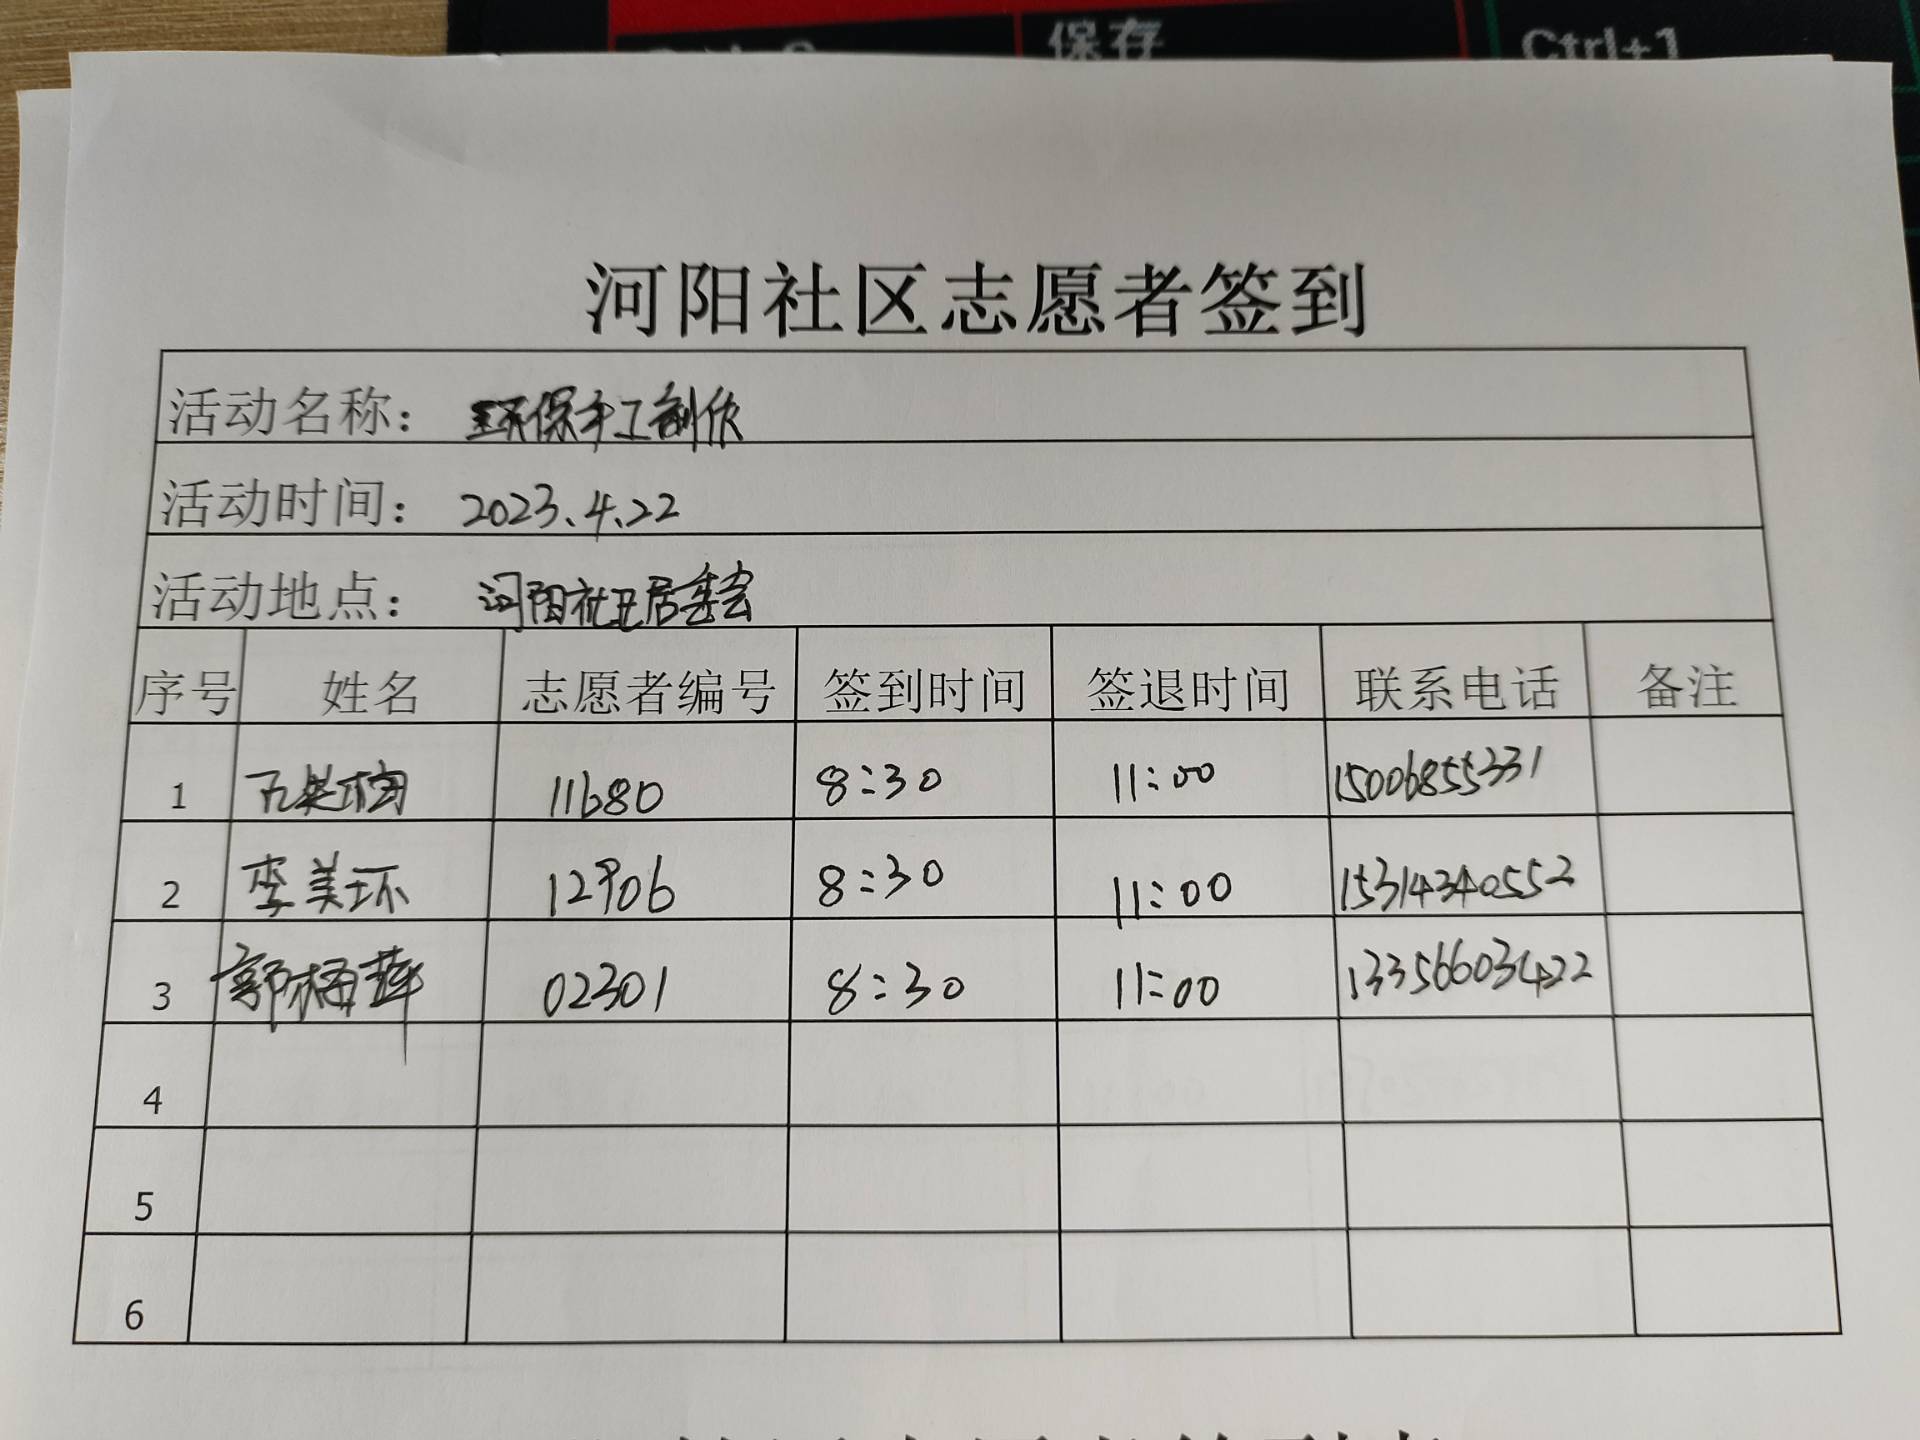 保存 Ctrl+1
河阳社区志愿者签到
活动名称： 环保手工制作
活动时间： 2023.4.22
活动地点： 河阳社区居委会
序号 姓名 志愿者编号 签到时间 签退时间 联系电话 备注
1 11680 8:30 11:00 15006855331
2 李美环 12906 8:30 11:00 15314340552
3 郭梅萍 02301 8:30 11:00 13356603422
4
5
6